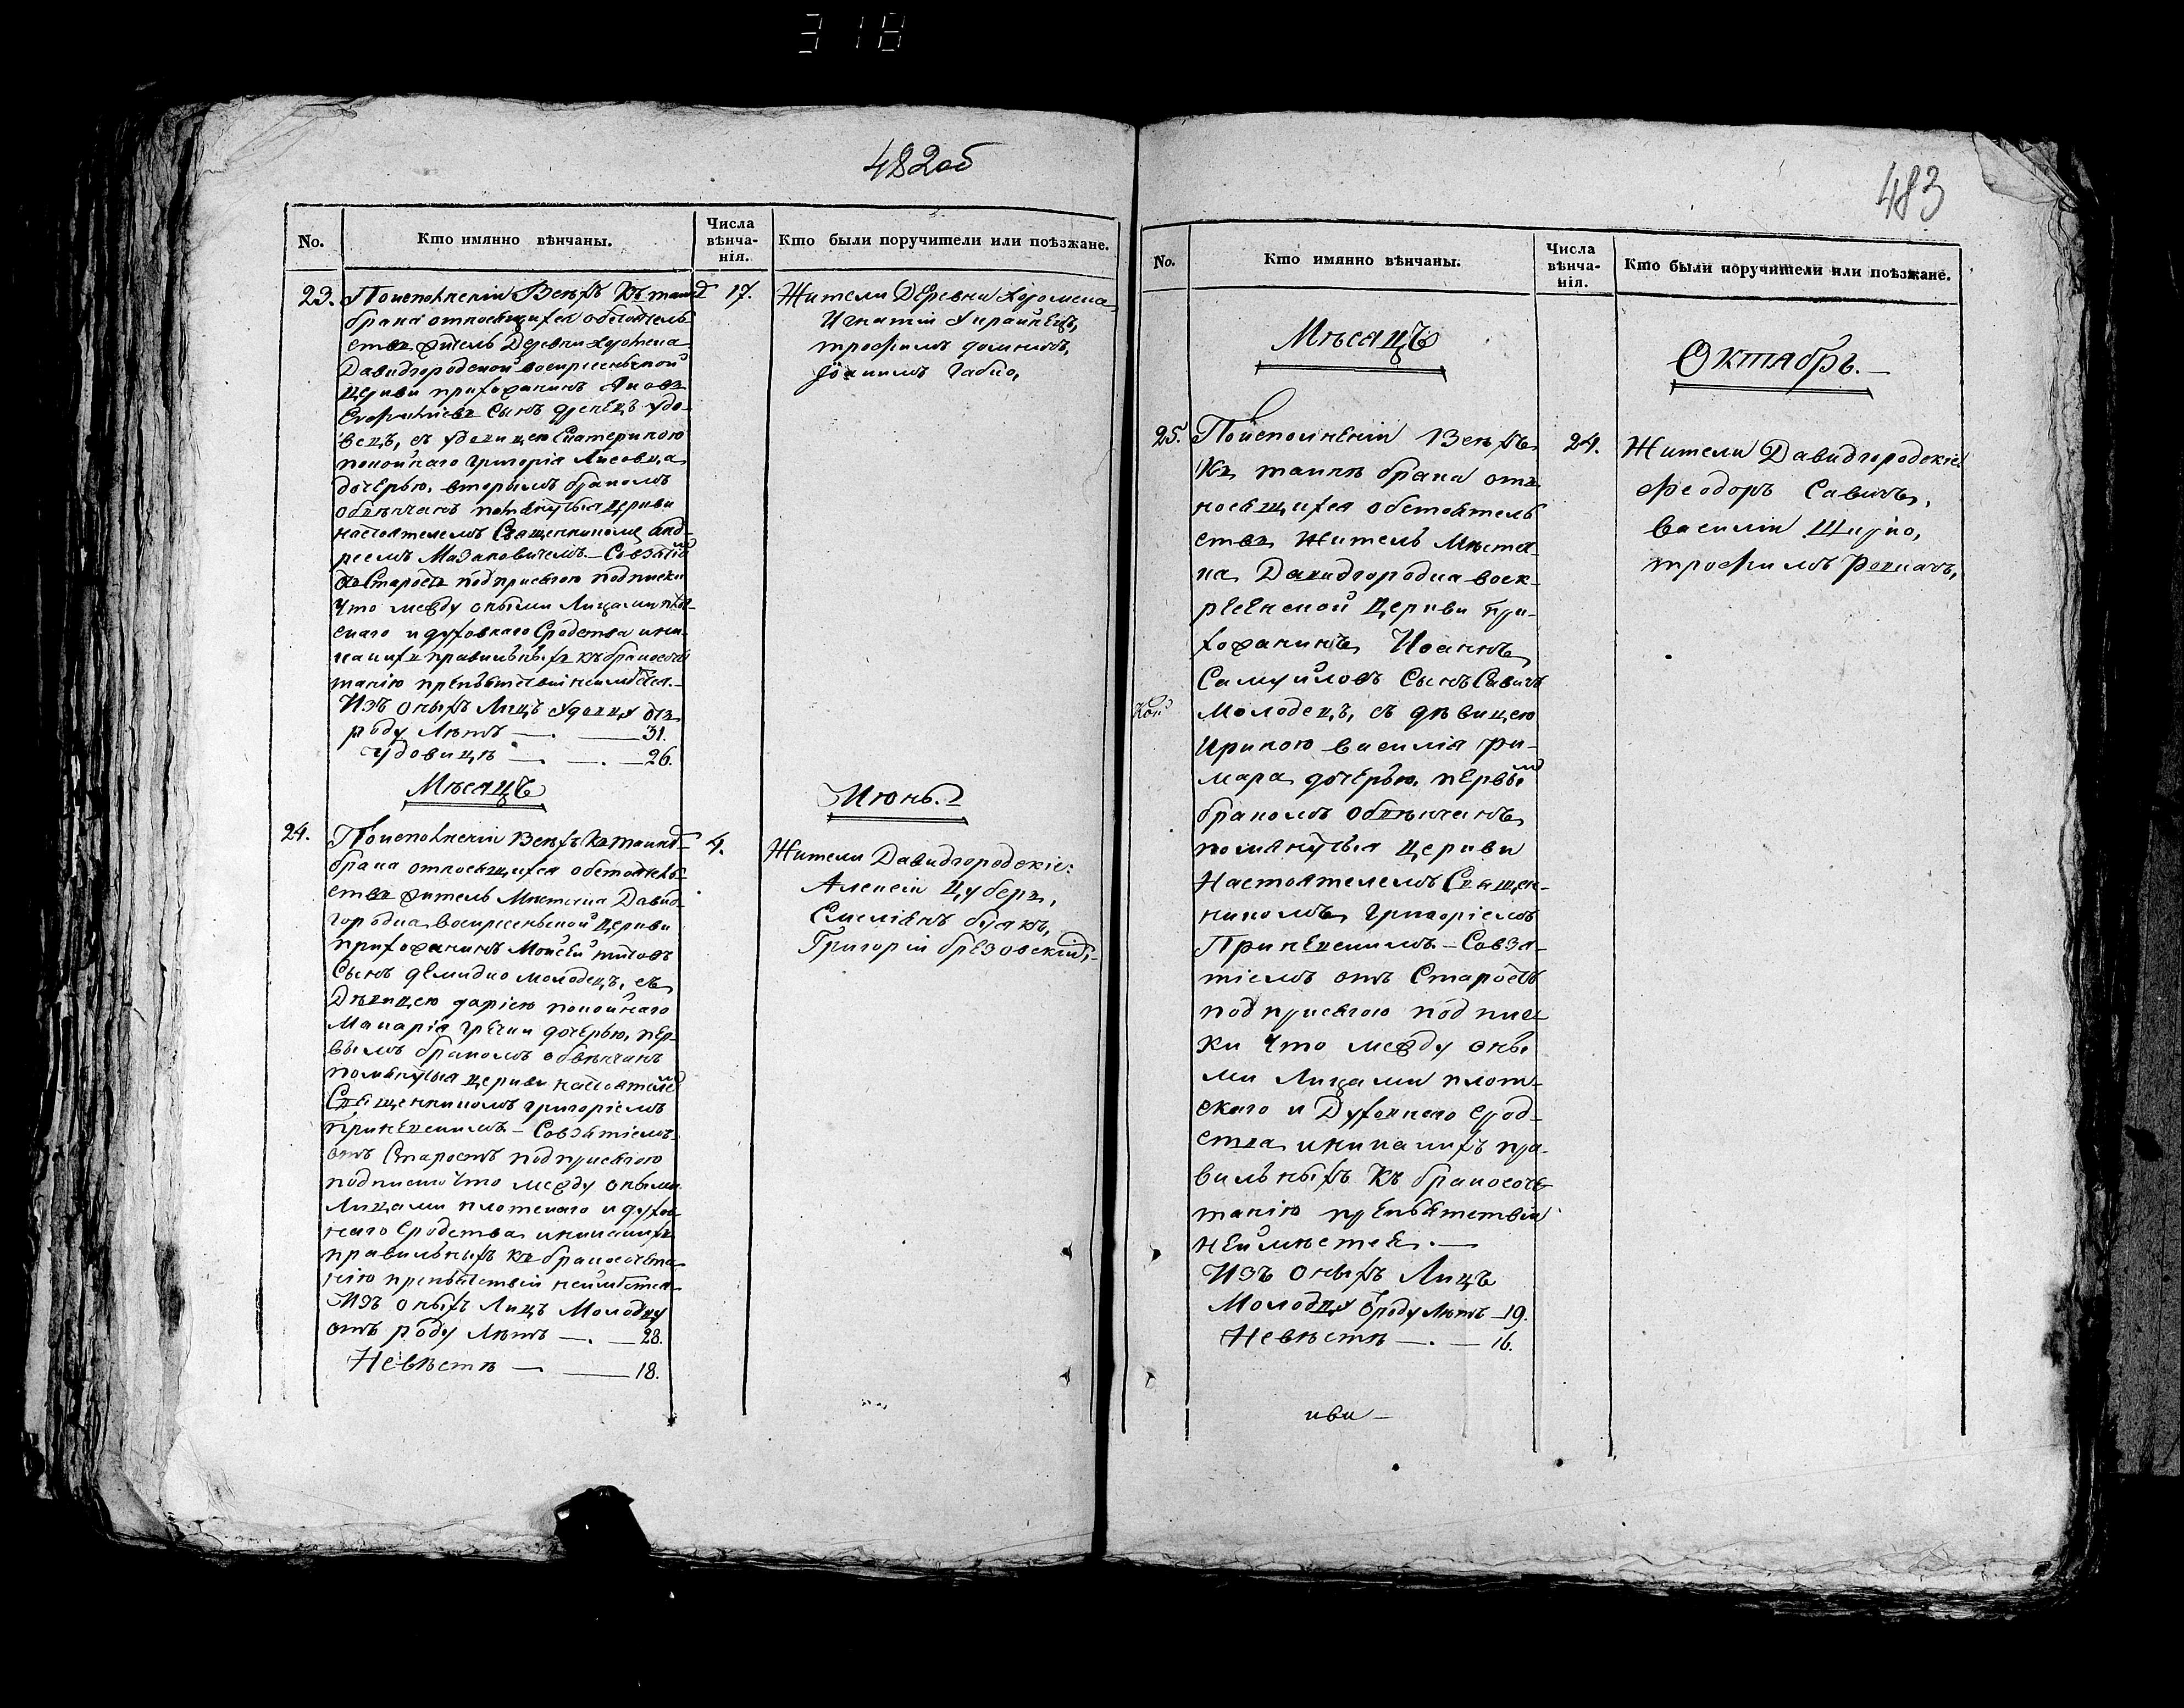 318
482об
No.
Кто имянно вѣнчаны.
Числа вѣнча-нія.
Кто были поручители или поѣзжане.
23. По исполненіи Всѣхъ Къ таинѣ 17.
брака относящихся обстоятель
ствъ житель Деревни Хоромска
Давидгородской воскресенской
церкви прихожанинъ Яковъ
сынъ удо-
вецъ, съ удовицею Екатериною
покойнаго Григорія Лисовца
дочерью. вторымъ бракомъ
обвѣнчанъ помянутыя церкви
настоятелемъ Священникомъ Анд-
реемъ Мазановичемъ. – Совзятіем
от Старостъ под присягою подписки
Что между оными Лицами плот-
скаго и духовнаго Сродства и ни-
какихъ правильныхъ къ бракосоче
танію препятствій неимѣется. –
Изъ оныхъ Лицъ удовцу отъ
роду Лѣтъ — . — 31.
Удовицѣ — . — 26.
Жители Деревни Хоромска
Игнатій
трофимъ
Іоакимъ Габко,
Мѣсяцъ
Июнь.
24. По исполненіи Всѣхъ Къ таинѣ 4.
брака относящихся обстоятель-
ствъ житель Мѣстечка Давид-
городка воскресенской церкви
прихожанинъ Моисей титовъ
Сынъ демидко молодецъ, съ
Дѣвицею даріею покойнаго
Макарія Гречки дочерью, пер-
вымъ бракомъ обвѣнчанъ
помянутыя церкви настоятелем
Священникомъ григоріемъ
Приневскимъ. – Совзятіемъ
отъ Старостъ под присягою
подписки Что между оными
Лицами плотскаго и духов-
наго Сродства и никакихъ
правильныхъ къ бракосочета-
нію препятствій неимѣется –
Изъ оныхъ Лицъ Молодцу
отъ роду Лѣтъ — . — 28.
Невѣстѣ — — 18.
Жители Давидгородскіе:
Алексій Цуберъ,
Емеліянъ букъ,
Григорій брезовскій,
483
No.
Кто имянно вѣнчаны.
Числа вѣнча-нія.
Кто были поручители или поѣзжане.
Мѣсяцъ
Октябрь. –
25. По исполненіи Всѣхъ 24.
Къ таинѣ брака отъ
носящихся обстоятель
ствъ Житель Мѣстеч
ка Давидгородка воск-
ресенской Церкви при-
хожанинъ Иоаннъ
Самуиловъ Сынъ Савичъ
Молодецъ, съ дѣвицею
Ириною василія ры-
мара дочерью, первым
бракомъ обвѣнчанъ
помянутыя церкви
Настоятелемъ Священ-
никомъ григоріемъ
Приневскимъ. – Совзя-
тіемъ отъ Старостъ
под присягою подпис
ки Что между оны
ми Лицами плот-
скаго и Духовнаго срод-
ства и никакихъ пра-
вильныхъ Къ бракосоче
танію препятствій
неимѣется. —
Изъ оныхъ Лицъ
Молодцу от роду Лѣтъ – 19.
Невѣстѣ — . — 16.
Жители Давидгородскіе
Феодоръ Савичъ,
василій Щирко,
трофимъ Ревкачъ,